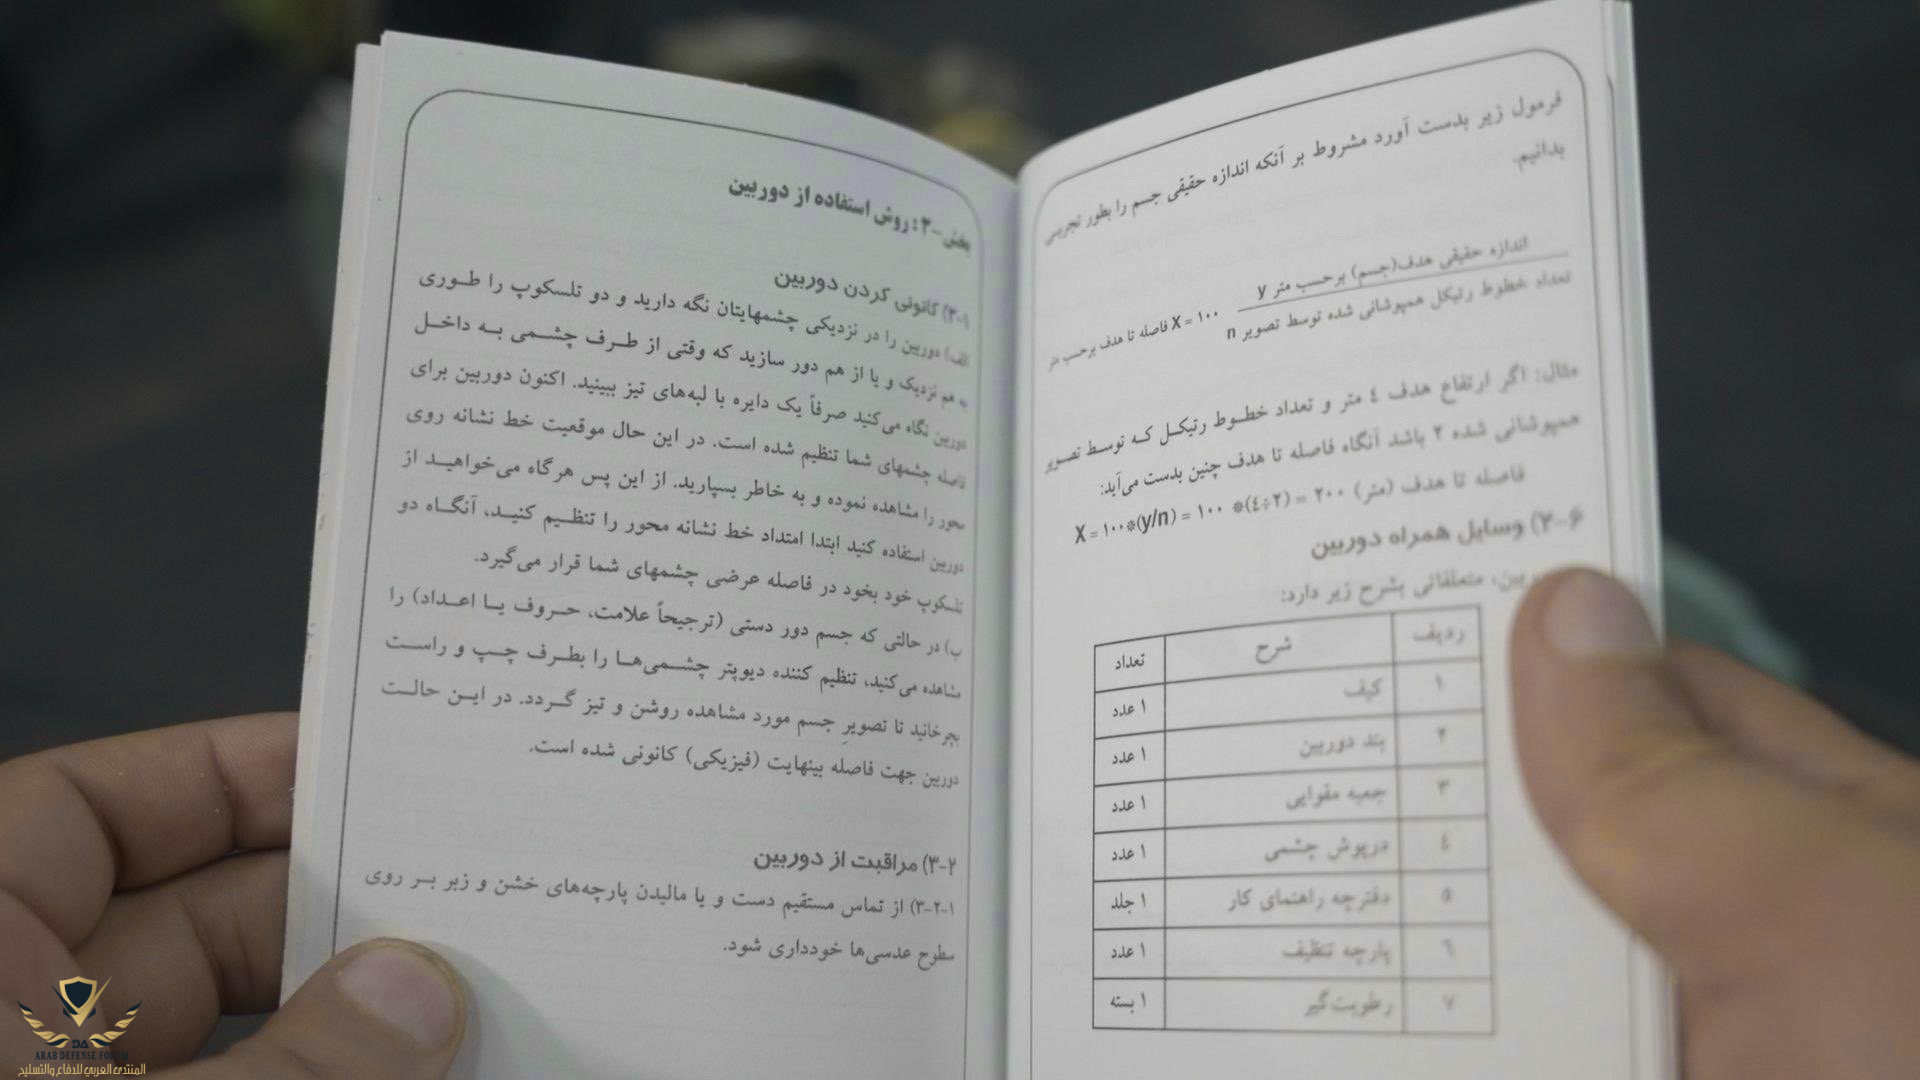 فرمول زیر بدست آورد مشروط بر آنکه اندازه حقیقی جسم را بطور تجربی
بدانیم.
اندازه حقیقی هدف(جسم) برحسب متر y
تعداد خطوط رتیکل همپوشانی شده توسط تصویر n
X = ۱۰۰ فاصله تا هدف برحسب متر
مثال: اگر ارتفاع هدف ٤ متر و تعداد خطوط رتیکل که توسط تصویر
همپوشانی شده ۲ باشد آنگاه فاصله تا هدف چنین بدست می‌آید:
فاصله تا هدف (متر) X = ۱۰۰*(y/n) = ۱۰۰ *(٤÷۲) = ۲۰۰
۲-۶) وسایل همراه دوربین
متعلقاتی بشرح زیر دارد:
ردیف شرح تعداد
۱ کیف ۱ عدد
۲ بند دوربین ۱ عدد
۳ جعبه مقوایی ۱ عدد
٤ درپوش چشمی ۱ عدد
۵ دفترچه راهنمای کار ۱ جلد
٦ پارچه تنظیف ۱ عدد
۷ رطوبت‌گیر ۱ بسته
بخش-۳: روش استفاده از دوربین
۳-۱) کانونی کردن دوربین
الف) دوربین را در نزدیکی چشمهایتان نگه دارید و دو تلسکوپ را طوری
به هم نزدیک و یا از هم دور سازید که وقتی از طرف چشمی به داخل
دوربین نگاه می‌کنید صرفاً یک دایره با لبه‌های تیز ببینید. اکنون دوربین برای
فاصله چشمهای شما تنظیم شده است. در این حال موقعیت خط نشانه روی
محور را مشاهده نموده و به خاطر بسپارید. از این پس هرگاه می‌خواهید از
دوربین استفاده کنید ابتدا امتداد خط نشانه محور را تنظیم کنید، آنگاه دو
تلسکوپ خود بخود در فاصله عرضی چشمهای شما قرار می‌گیرد.
ب) در حالتی که جسم دور دستی (ترجیحاً علامت، حروف یا اعداد) را
مشاهده می‌کنید، تنظیم کننده دیوپتر چشمی‌ها را بطرف چپ و راست
بچرخانید تا تصویرِ جسم مورد مشاهده روشن و تیز گردد. در این حالت
دوربین جهت فاصله بینهایت (فیزیکی) کانونی شده است.
۳-۲) مراقبت از دوربین
۳-۲-۱) از تماس مستقیم دست و یا مالیدن پارچه‌های خشن و زبر بر روی
سطوح عدسی‌ها خودداری شود.
DA
ARAB DEFENSE FORUM
المنتدى العربي للدفاع والتسليح